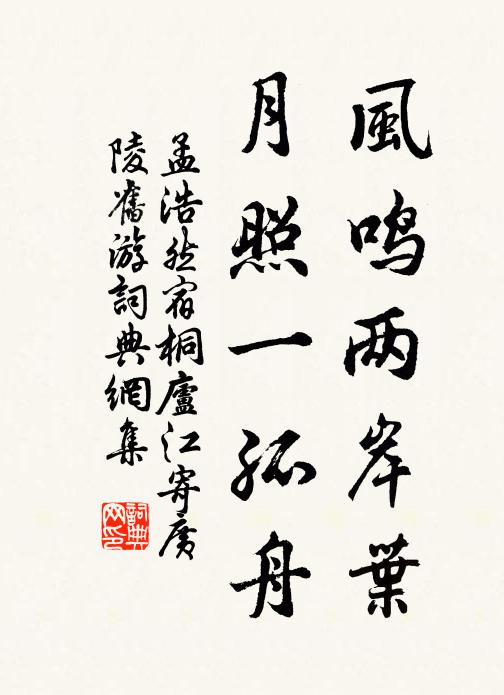 風鸣两岸葉
月照一孤舟
孟浩然宿桐廬江寄廣
陵舊游詞典網集
詞典
网印